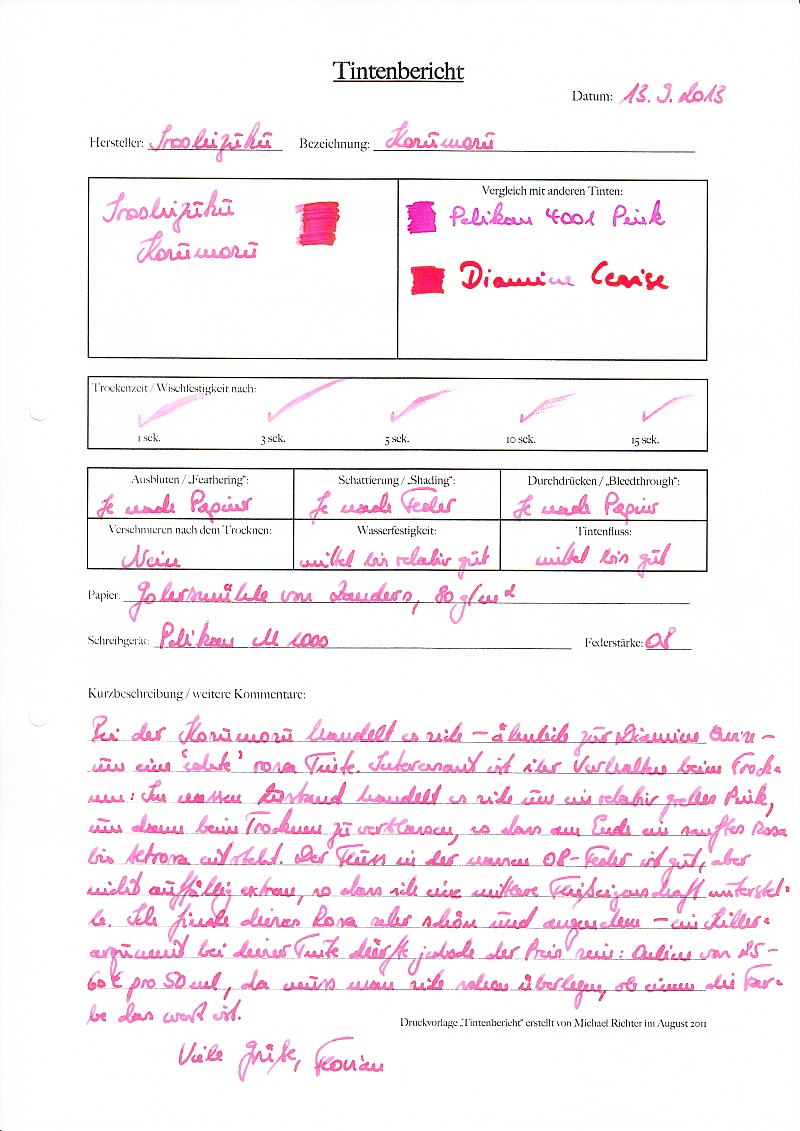 Tintenbericht
Datum: 13. 9. 2013
Hersteller: Iroshizuku Bezeichnung: Kosumosu
Iroshizuku
Kosumosu
Vergleich mit anderen Tinten:
Pelikan 4001 Pink
Diamine Cerise
Trockenzeit / Wischfestigkeit nach:
1 sek. 3 sek. 5 sek. 10 sek. 15 sek.
Ausbluten / „Feathering“: Schattierung / „Shading“: Durchdrücken / „Bleedthrough“:
Je nach Papier Je nach Feder Je nach Papier
Verschmieren nach dem Trocknen: Wasserfestigkeit: Tintenfluss:
Nein mittel bis relativ gut mittel bis gut
Papier: Gohrsmühle von Zanders, 80 g/m²
Schreibgerät: Pelikan M 1000 Federstärke: OB
Kurzbeschreibung / weitere Kommentare:
Bei der Kosumosu handelt es sich – ähnlich zur Diamine Cerise –
um eine 'echte' rosa Tinte. Interessant ist ihr Verhalten beim Trock-
nen: Im nassen Zustand handelt es sich um ein relativ grelles Pink,
um dann beim Trocknen zu verblassen, so dass am Ende ein sanftes Rosa
bis Altrosa entsteht. Der Fluss in der OB-Feder ist gut, aber
nicht auffällig extrem, so dass ich eine mittlere Fließeigenschaft unterstel-
le. Ich finde dieses Rosa sehr schön und angenehm – ein Killer-
argument bei dieser Tinte dürfte jedoch der Preis sein: Online von 25–
60 € pro 50 ml, da muss man sich schon überlegen, ob einem die Far-
be das wert ist.
Druckvorlage „Tintenbericht“ erstellt von Michael Richter im August 2011
Viele Grüße, Florian